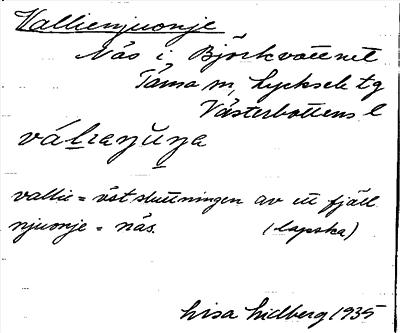 Vallienjuonje
Näs i Björkvattnet
Tärna sn, Lycksele tg
Västerbottens l
vallie = västsluttningen av ett fjäll
njuonje = näs. (lapska)
Lisa Lidberg 1935